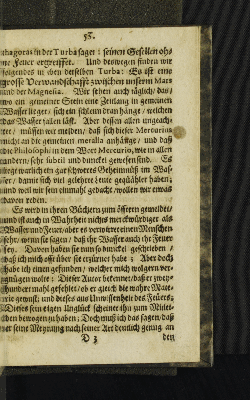 55.
thagoras in der Turba saget: seinen Gesellen oh-
ne Feuer ergreiffet. Und deswegen finden wir
folgendes in eben derselben Turba: Es ist eine
grosse Verwandschafft zwischen unserm Mars
und der Magnesia. Wir sehen auch täglich, daß
wo ein gemeiner Stein eine Zeitlang in gemeinen
Wasser lieget, sich ein schleim dran hänge, welchen
das Wasser fallen läst. Aber dessen allen ungeach-
tet, müssen wir melden, daß sich dieser Mercurius
nicht an die gemeinen metalla anhänge, und daß
die Philosophi in dem Wort Mercurio, wie in allen
andern, sehr subtil und dunckel gewesen sind. Es
lieget warlich ein gar schweres Geheimnüß im Was-
ser, damit sich viel gelehrte Leute gequählet haben;
und weil wir sein einmahl gedacht, wollen wir etwas
davon reden.
Es wird in ihren Büchern zum öfftern gemeldet,
und ist auch in Warheit nichts merckwürdiger als
Wasser und Feuer, aber es verwirret einen Menschen
sehr, wenn sie sagen, daß ihr Wasser auch ihr Feuer
sey. Davon haben sie nun so dunckel geschrieben,
daß ich mich offt über sie erzürnet habe; Aber doch
habe ich einen gefunden, welcher mich wolgern ver-
gnügen wolte: Dieser Autor bekennet, daß er zwey-
hundert mahl gefehlet, ob er gleich die wahre Mate-
rie gewust, und dieses aus Unwissenheit des Feuers.
Dieses sein eigen Unglück scheinet ihn zum Mitlei-
den bewogen zu haben; Doch muß ich das sagen, daß
er seine Meynung nach seiner Art deutlich genug an
D 3
den